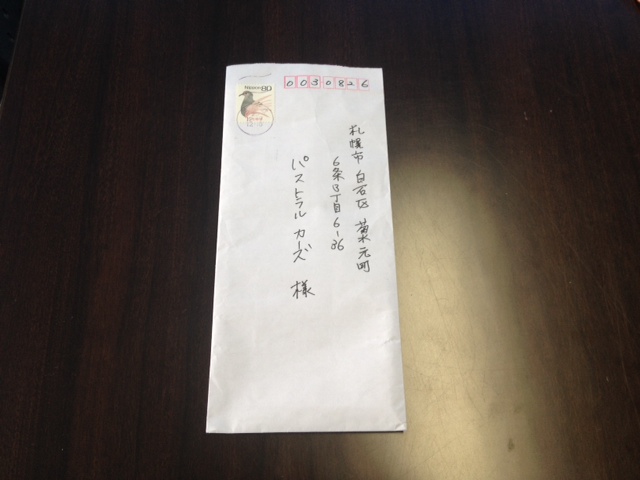 0030826
札幌市 白石区 菊水 元町
6条3丁目 6-36
パストラル カーズ 様
NIPPON 80